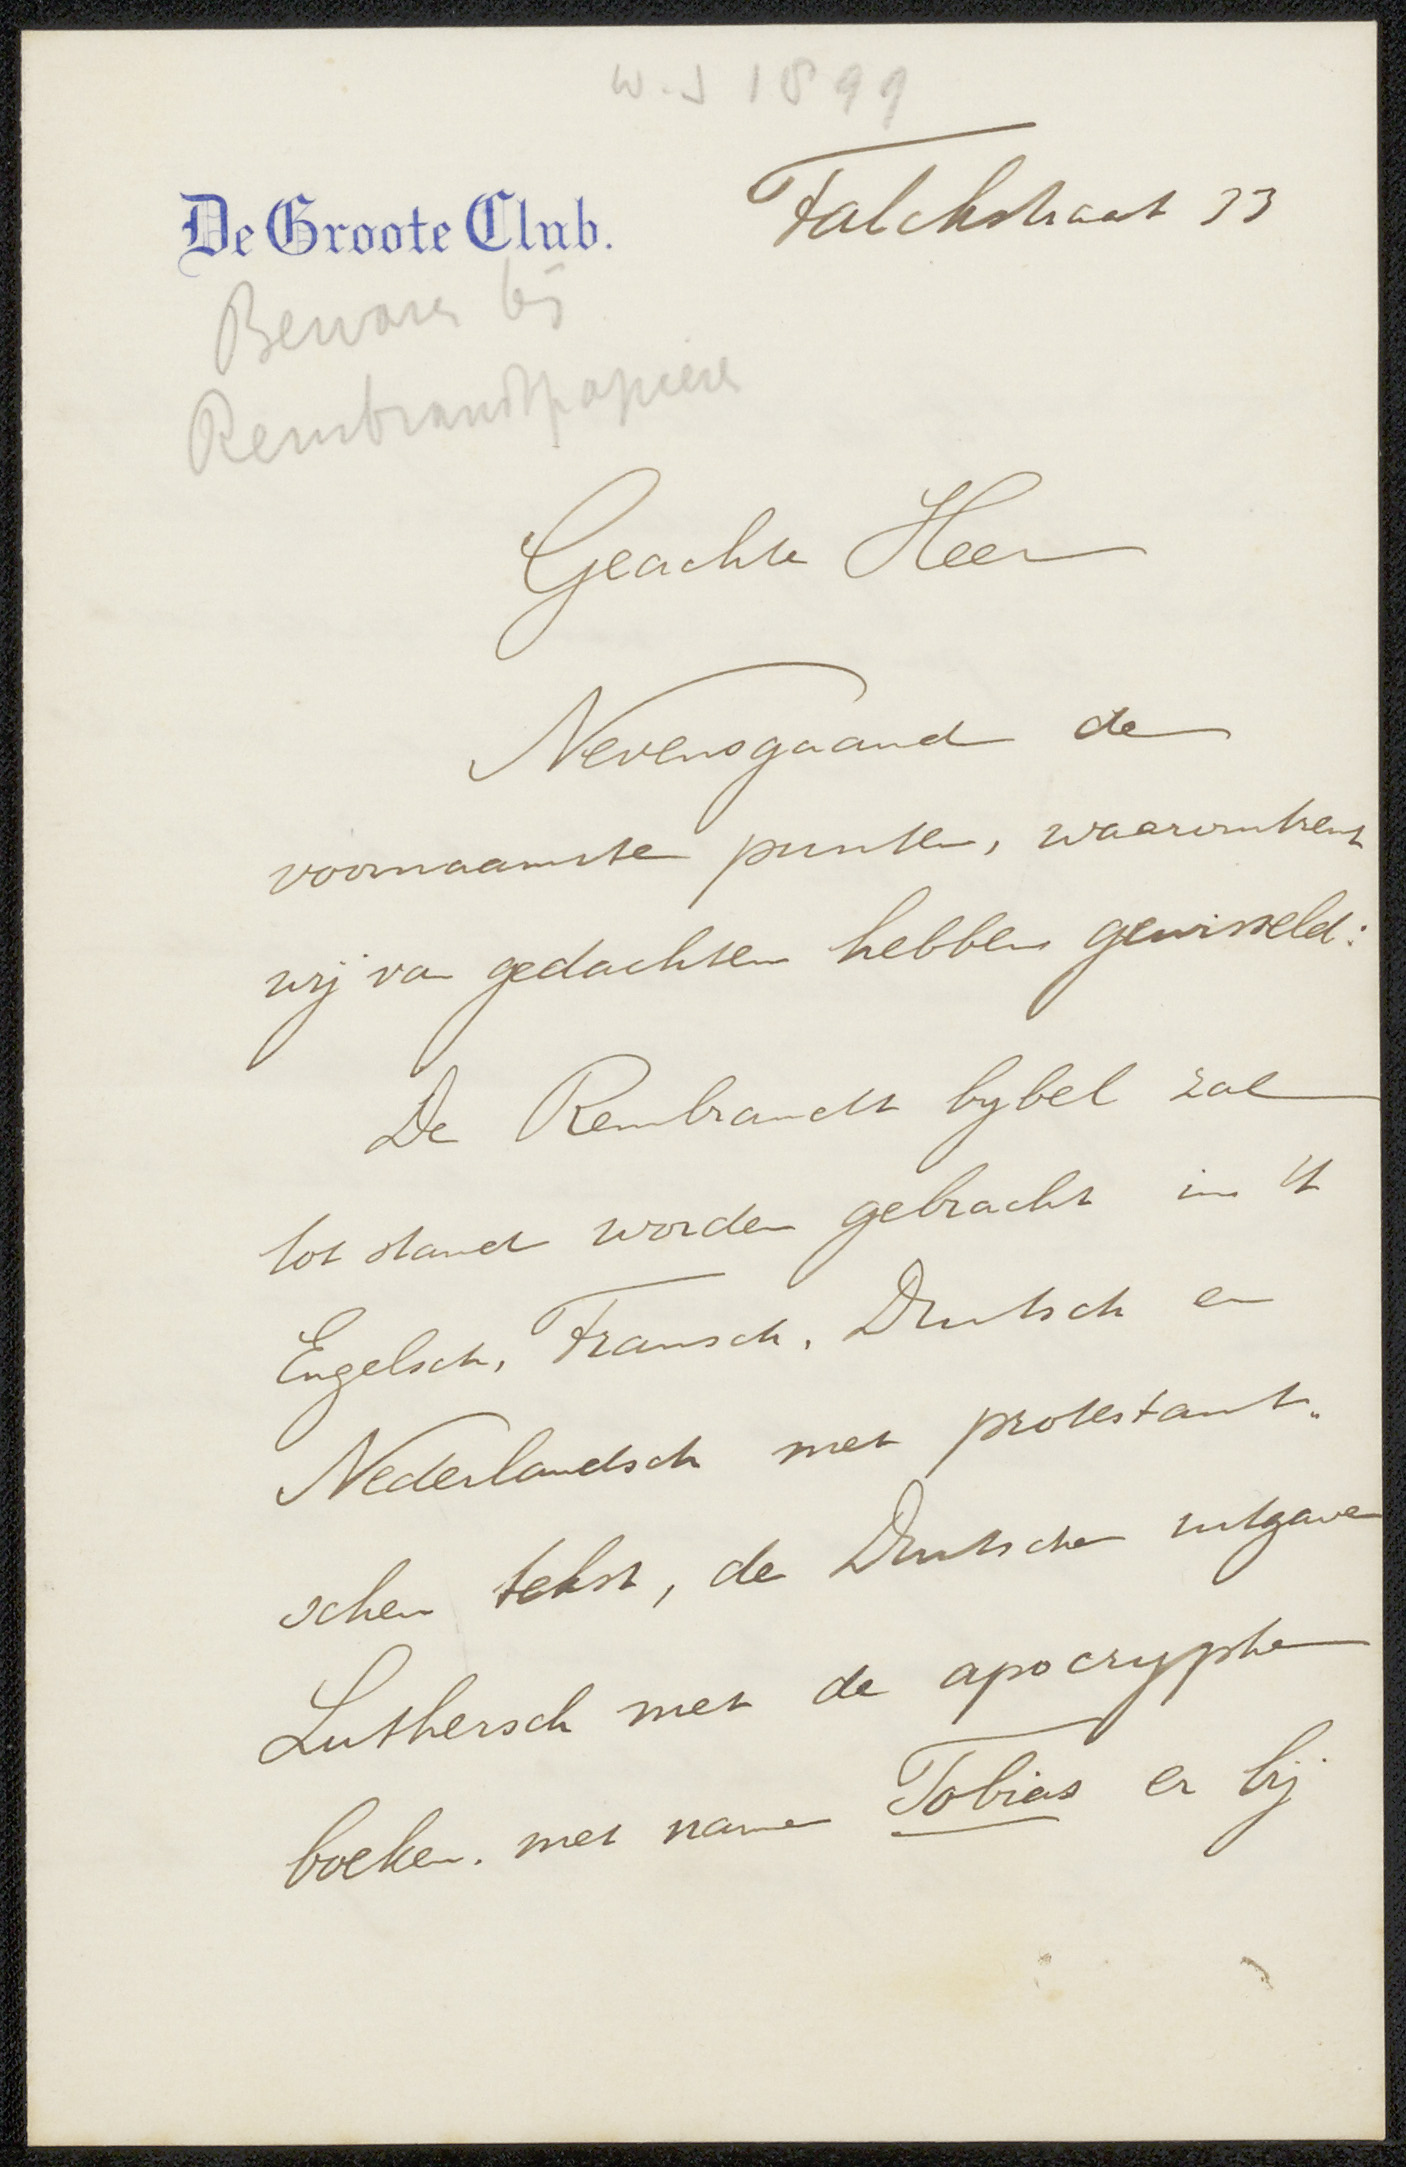 w.J 1899
De Groote Club.
Falckstraat 33
Bewaren bij
Rembrandtpapieren
Geachte Heer
Nevensgaand de
voornaamste punten, waaromtrent
wij van gedachten hebben gewisseld:
De Rembrandt bybel zal
tot stand worden gebracht in 't
Engelsch, Fransch, Duitsch en
Nederlandsch met protestant„
schen tekst, de Duitsche uitgave
Luthersch met de apocryphe
boeken. met name Tobias er bij